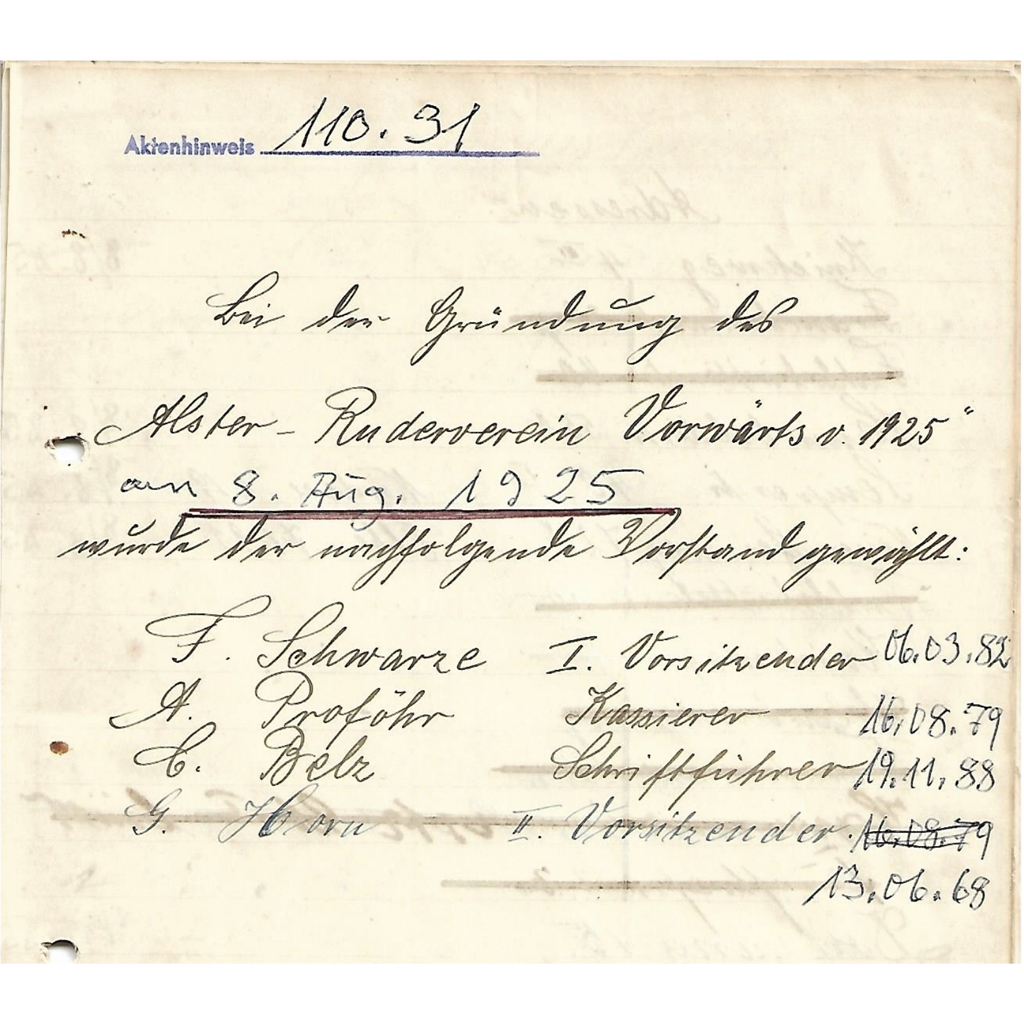 Aktenhinweis 110.31
Bei der Gründung des
Alster-Ruderverein Vorwärts v. 1925"
am 8. Aug. 1925
wurde der nachfolgende Vorstand gewählt:
F. Schwarze I. Vorsitzender 06.03.82
A. Proföhr Kassierer 16.08.79
C. Belz Schriftführer 19.11.88
G. Horn II. Vorsitzender. 16.08.79
13.06.68